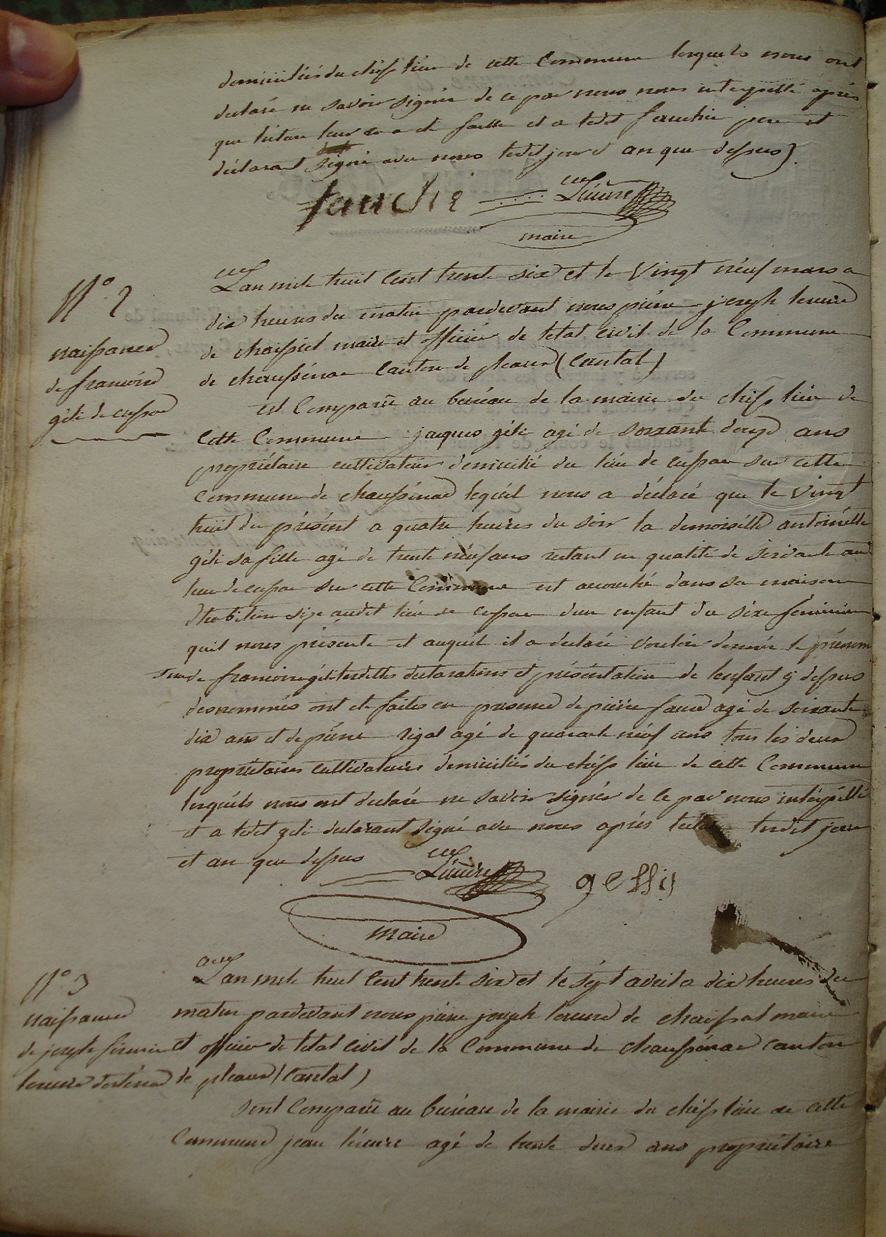 domiciliés du chef lieu de cette Commune lesquels nous ont
declaré ne savoir signer de ce par nous interpellé après
que lecture leur en a été faitte et a ledit fauchié pere et
déclarant signé avec nous lesdits jour et an que dessus).
fauchié Lieure
maire
N° 2
naissance
de francoise
géli de cussac
L'an mile huit cent trente six et le vingt neuf mars a
dix heures du matin pardevant nous pierre joseph lieure
de chaissiol maire et officier de letat civil de la Commune
de chaussenac Canton de pleaux (Cantal)
est Comparu au bureau de la mairie du chef lieu de
cette Commune jacques géli agé de soixante douze ans
propriétaire cultivateur domicilié du lieu de cussac sur cette
Commune de chaussenac lequel nous a déclaré que le vingt
huit du présent a quatre heures du soir la demoiselle antoinette
géli sa fille agé de trente neuf ans restant en qualité de servante au
lieu de cussac sur cette Commune est accouché dans sa maison
d'habitation size audit lieu de cussac d'un enfant du sixe féminin
quil nous présente et auquel il a declaré vouloir donner le prénom
de francoise géli lesdittes declarations et présentation de lenfant cy dessus
desnommés ont été faites en presence de pierre faure agé de soixante
dix ans et de pierre rigal agé de quarante neuf ans tous les deux
propriétaires cultivateurs domiciliés du chef lieu de cette Commune
lesquels nous ont declaré ne savoir signer de ce par nous interpellé
et a ledit géli declarant signé avec nous après lecture lesdit jour
et an que dessus Lieure
maire
N° 3
naissance
de joseph firmin
L'an mile huit cent trente six et le sept avril a dix heures du
matin pardevant nous pierre joseph lieure de chaissiol maire
et officier de letat civil de la Commune de chaussenac canton
de pleaux (Cantal)
sont Comparu au bureau de la mairie du chef lieu de cette
Commune jean lieure agé de trente deux ans propriétaire